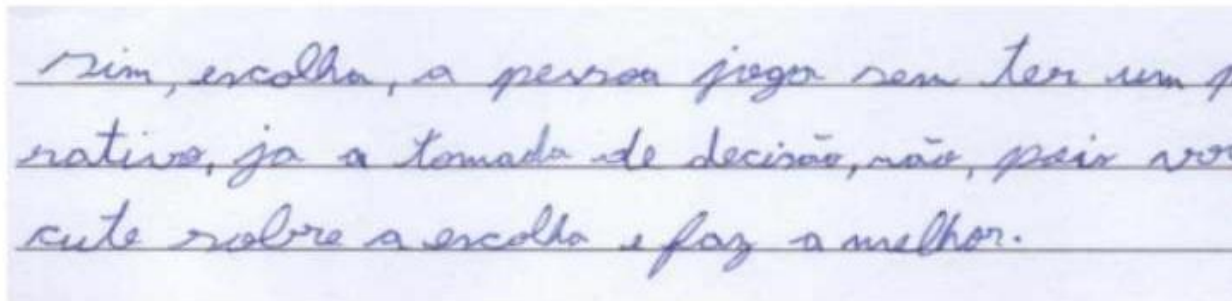 sim, escolha, a pessoa joga sem ter um
rativo, ja a tomada de decisão, não, pois vo
cute sobre a escolha e faz a melhor.